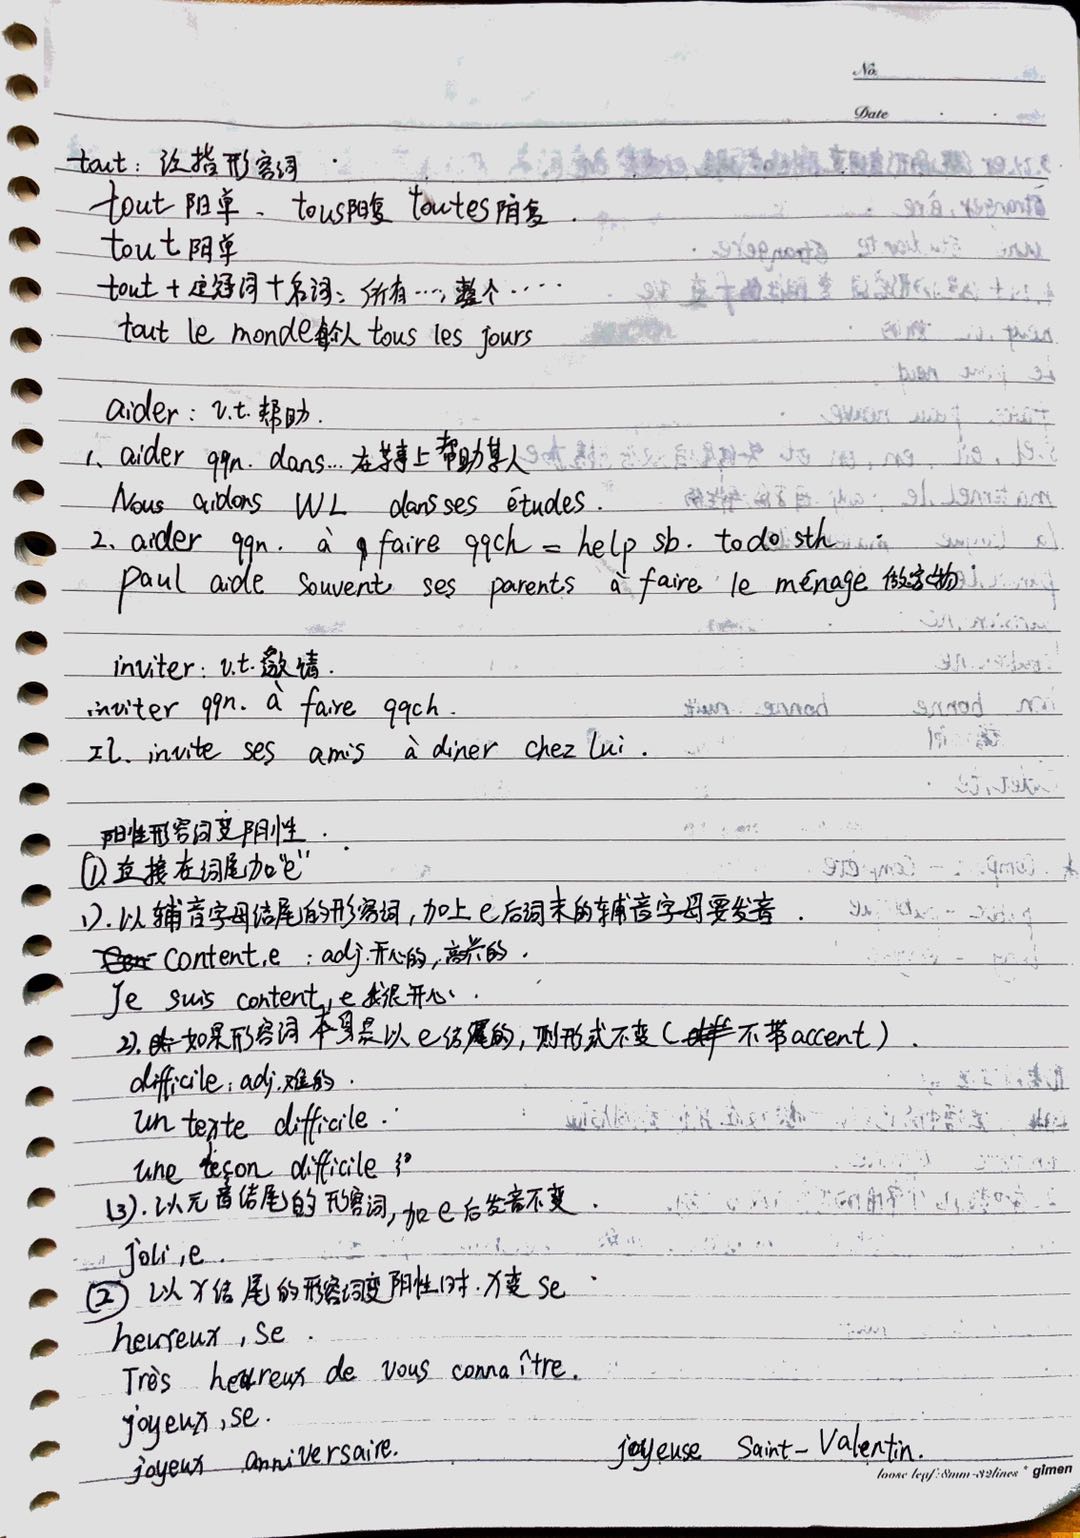 No.
Date
tout: 泛指形容词
tout 阳单. tous阳复 toutes 阴复.
tout 阴单
tout + 定冠词 + 名词: 所有…; 整个……
tout le monde 每个人 tous les jours
aider: v.t. 帮助.
1. aider qqn. dans... 在某事上帮助某人
Nous aidons WL dans ses études.
2. aider qqn. à faire qqch = help sb. to do sth
Paul aide souvent ses parents à faire le ménage 做家物
inviter: v.t. 邀请.
inviter qqn. à faire qqch.
Il invite ses amis à diner chez lui.
阳性形容词变阴性.
①直接在词尾加"e"
1). 以辅音字母结尾的形容词, 加上e后词末的辅音字母要发音.
content,e : adj.开心的,高兴的.
Je suis content,e 我很开心.
2). 如果形容词本身是以e结尾的, 则形式不变 ( 不带accent ).
difficile: adj.难的.
un texte difficile.
une leçon difficile
(3). 以元音结尾的形容词, 加e后发音不变.
joli,e.
② 以x结尾的形容词变阴性时. x变se
heureux, se.
Très heureux de vous connaître.
joyeux, se.
joyeux anniversaire. joyeuse Saint-Valentin.
loose leaf: 8mm-32lines * gimen